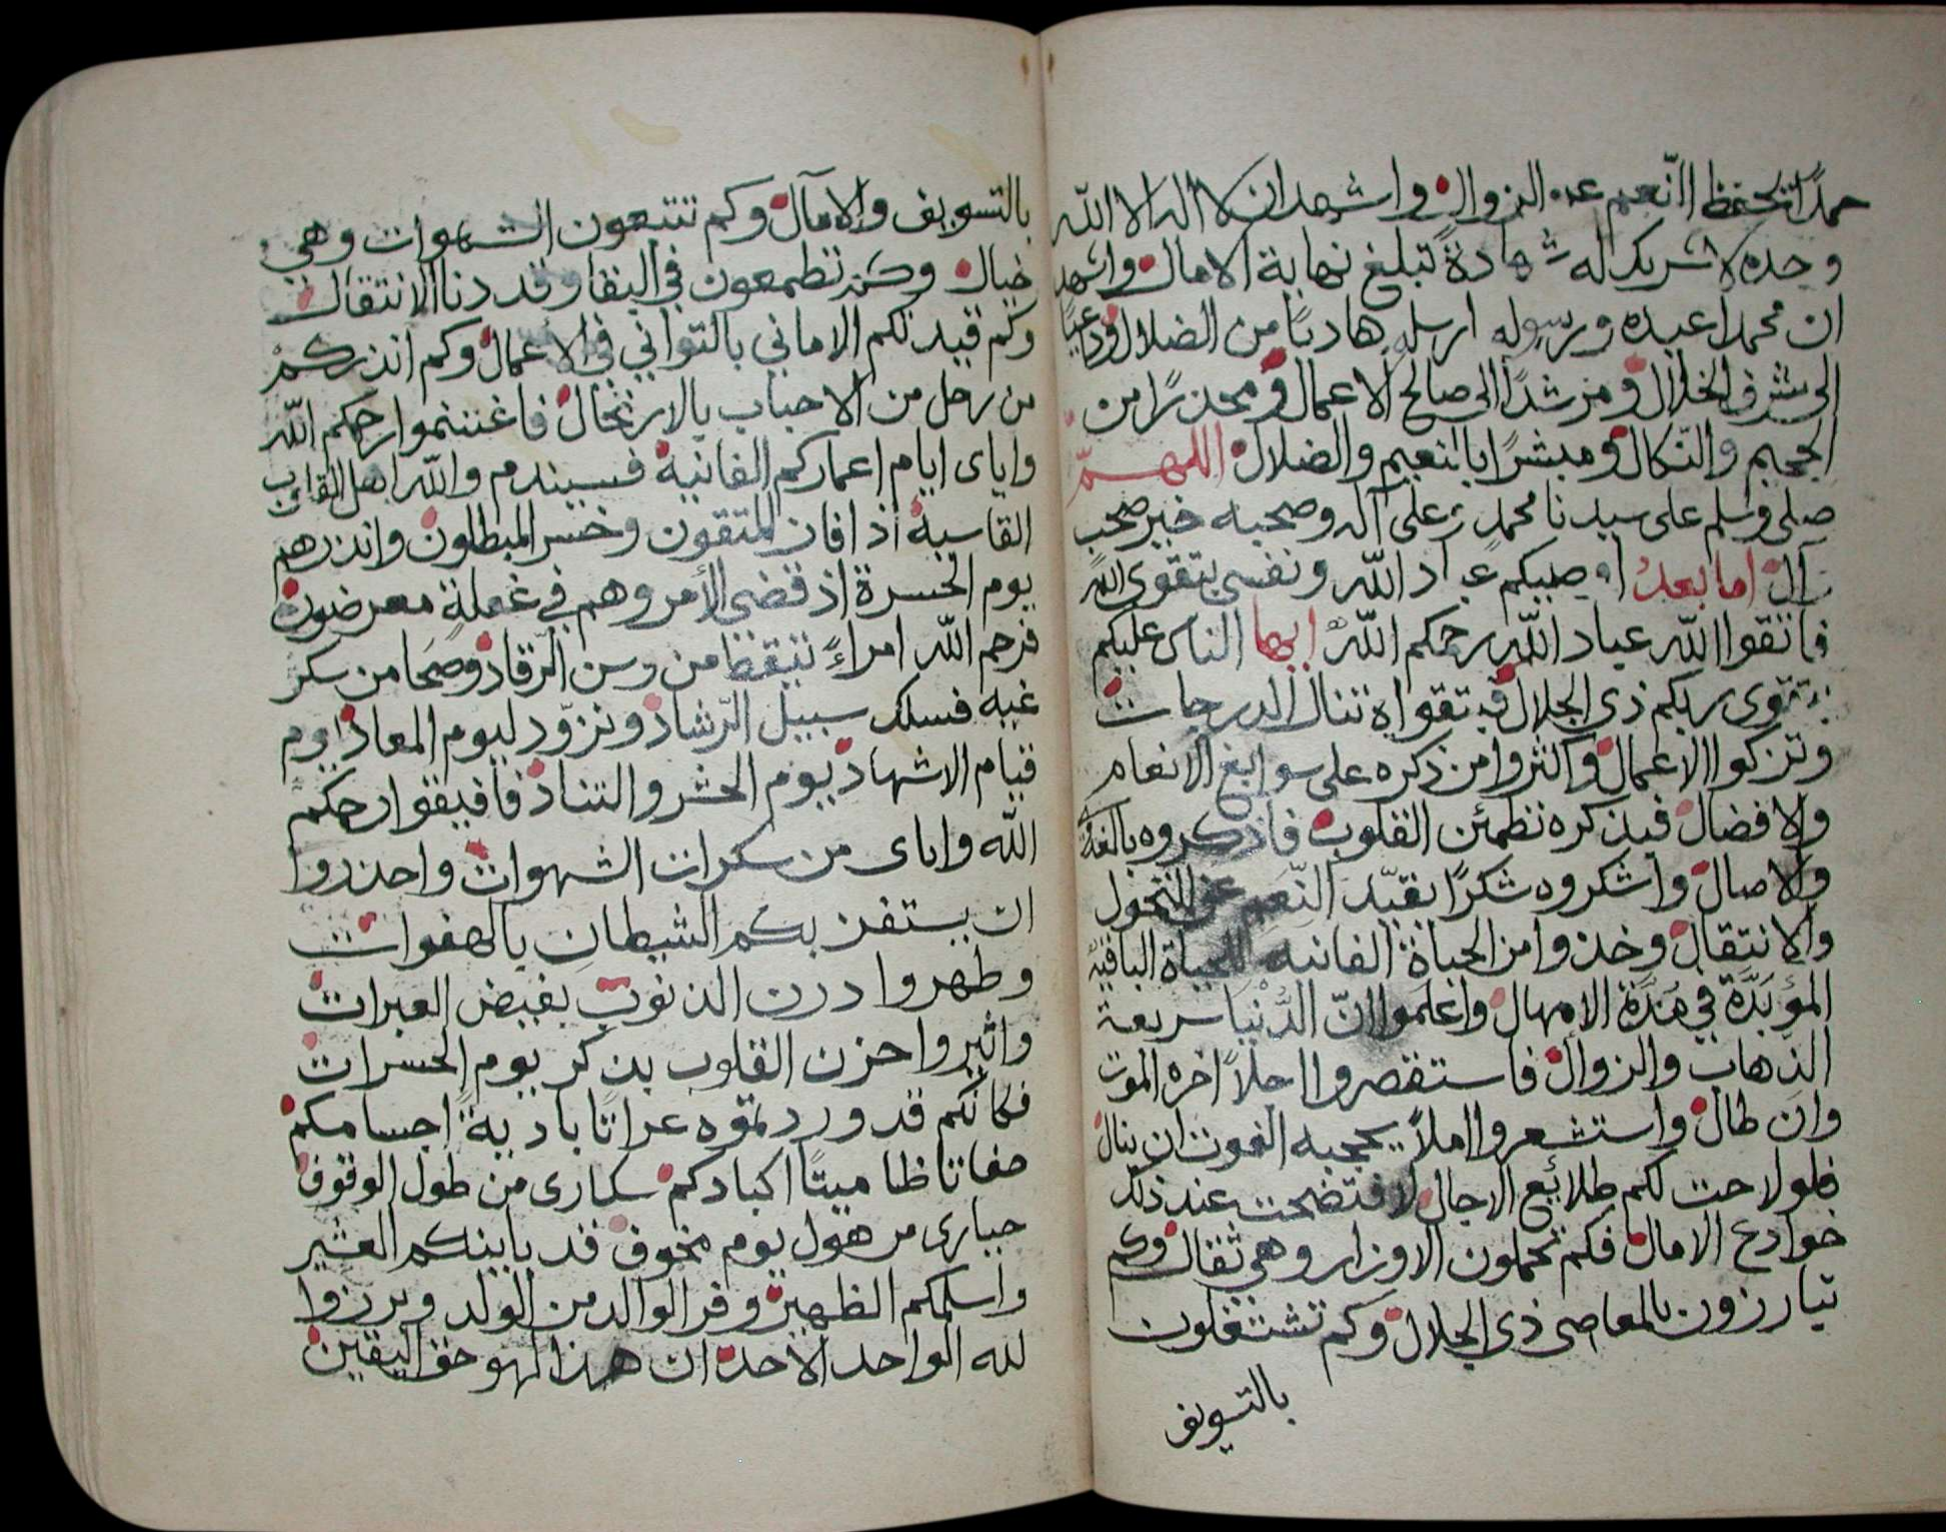 حمدًا تحفظ النّعم عن الزوال واشهد ان لا اله الا الله
وحده لا شريك له شهادةً تبلغ نهاية الامال واشهد
ان محمدا عبده ورسوله ارسله هاديًا من الضلال وداعيًا
الى شرف الخلال ومرشدًا الى صالح الاعمال ومحذرًا من
الجحيم والنّكال ومبشرًا بالنعيم والضلال اللهمّ
صلى وسلم على سيدنا محمدٍ وعلى آله وصحبه خير صحب
وآل اما بعد اوصيكم عباد الله ونفسي بتقوى الله
فاتقوا الله عباد الله رحمكم الله ايها الناس عليكم
بتقوى ربكم ذي الجلال فبتقواه تنال الدرجات
وتزكوا الاعمال واكثروا من ذكره على سوابغ الانعام
والافضال فبذكره تطمئن القلوب فاذكروه بالغدو
والاصال واشكروه شكرًا يقيّد النّعم عن التحول
والانتقال وخذوا من الحياة الفانية للحياة الباقية
المؤبّدة في مدّة الامهال واعلموا انّ الدّنيا سريعة
الذهاب والزوال فاستقصروا اجلاً اخره الموت
وان طال واستشعروا املاً يحجبه الفوت ان ينال
فلو لاحت لكم طلائع الاجال لافتضحت عند ذلك
خوادع الامال فكم تحملون الاوزار وهي ثقال وكم
تبارزون بالمعاصي ذي الجلال وكم تشتغلون
بالتسويف
بالتسويف والامآل وكم تتبعون الشهوات وهي
خيال وكم تطمعون في البقا وقد دنا الانتقال
وكم قيد لكم الاماني بالتواني في الاعمال وكم انذركم
من رحل من الاحباب بالارتحال فاغتنموا رحمكم الله
واياى ايام اعماركم الفانية فسيندم والله اهل القلوب
القاسية اذا فاز المتقون وخسر المبطلون وانذرهم
يوم الحسرة اذ قضي الأمر وهم في غفلةٍ معرضون
فرحم الله امراءً تيقظ من وسن الرّقاد وصحا من سكر
غيه فسلك سبيل الرّشاد وتزوّد ليوم المعاد يوم
قيام الاشهاد يوم الحشر والتناد فافيقوا رحمكم
الله واياى من سكرات الشهوات واحذروا
ان يستفز بكم الشيطان بالهفوات
وطهروا درن الذنوب بفيض العبرات
واثيروا حزن القلوب بذكر يوم الحسرات
فكانكم قد وردتموه عراتًا باديةً اجسامكم
حفاتا ظاميتًا اكبادكم سكارى من طول الوقوف
حيارى من هول يوم مخوف قد باينكم العشير
واسلمكم الظهير وفر الوالد من الولد وبرزوا
لله الواحد الأحد ان هذا لهو حق اليقين